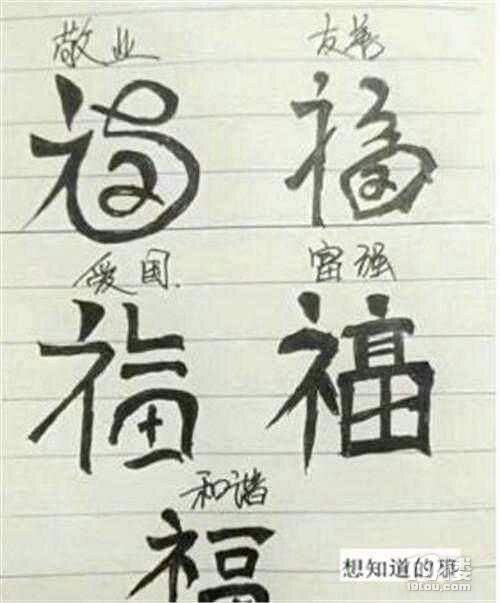 敬业 友善
福 福
爱国 富强
福 福
和谐
福
想知道的事
19lou.com